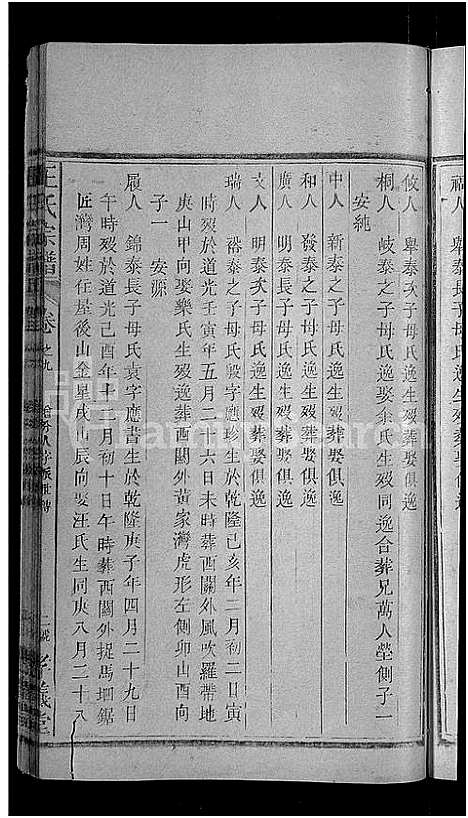 福人 泰長子母氏逸生歿葬娶俱逸
攸人 舉泰次子母氏逸生歿葬娶俱逸
桐人 岐泰之子母氏逸娶余氏生歿同逸合葬兄萬人塋側子一
安純
中人 新泰之子母氏逸生歿葬娶俱逸
和人 發泰之子母氏逸生歿葬娶俱逸
廣人 明泰長子母氏逸生歿葬娶俱逸
文人 明泰次子母氏逸生歿葬娶俱逸
瑞人 裕泰之子母氏毅字應珍生於乾隆己亥年二月初二日寅
時歿於道光壬寅年五月二十六日未時葬西關外風吹羅帶地
庚山甲向娶樂氏生歿逸葬西關外黃家灣虎形左側卯山酉向
子一 安源
履人 錦泰長子母氏袁字應書生於乾隆庚子年四月二十九日
午時歿於道光己酉年十二月初十日午時葬西關外捉馬堌鋸
匠灣周姓住屋後山金星戌山辰向娶汪氏生同庚八月二十八
王氏宗譜 卷之九 人字派世諱 孝義堂